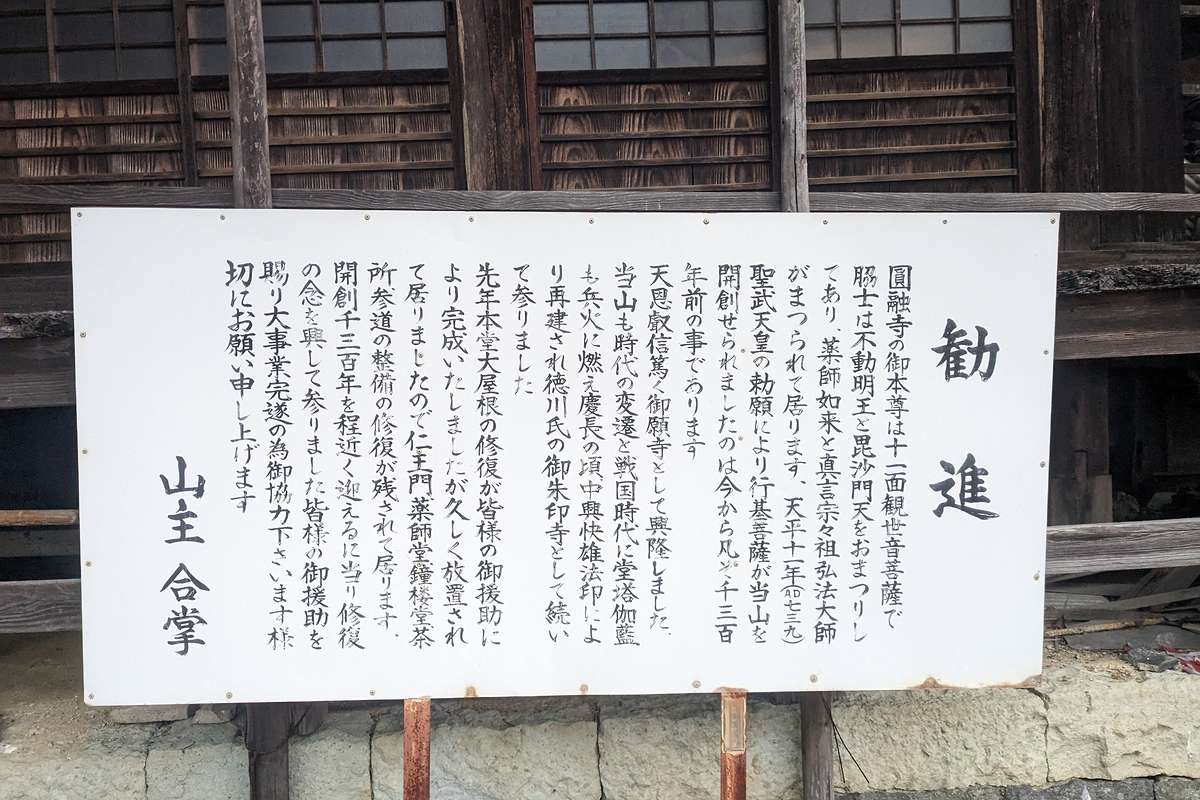 勧進
圓融寺の御本尊は十一面観世音菩薩で
脇士は不動明王と毘沙門天をおまつりし
てあり、薬師如来と真言宗々祖弘法大師
がまつられて居ります、天平十一年(七三九)
聖武天皇の勅願により行基菩薩が当山を
開創せられましたのは今から凡そ千三百
年前の事であります
天恩叡信篤く御願寺として興隆しました、
当山も時代の変遷と戦国時代に堂塔伽藍
も兵火に燃え慶長の頃中興快雄法印によ
り再建され徳川氏の御朱印寺として続い
て参りました
先年本堂大屋根の修復が皆様の御援助に
より完成いたしましたが久しく放置され
て居りましたので仁王門薬師堂鐘楼堂茶
所参道の整備の修復が残されて居ります、
開創千三百年を程近く迎えるに当り修復
の念を興して参りました皆様の御援助を
賜り大事業完遂の為御協力下さいます様
切にお願い申し上げます
山主合掌